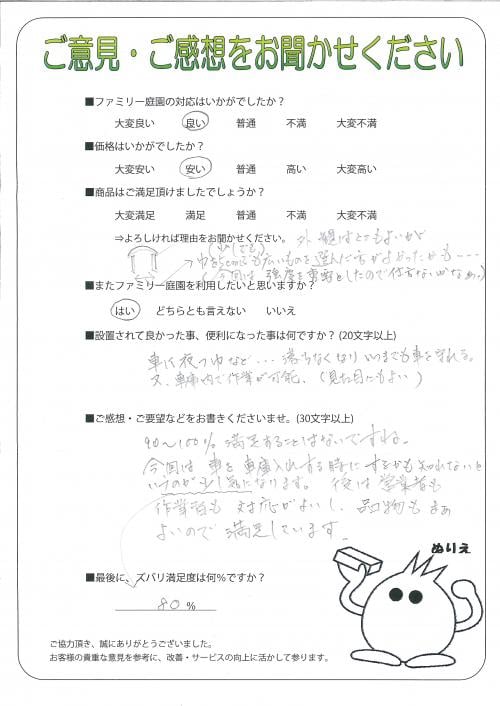 ご意見・ご感想をお聞かせください
■ファミリー庭園の対応はいかがでしたか？
大変良い 良い 普通 不満 大変不満
■価格はいかがでしたか？
大変安い 安い 普通 高い 大変高い
■商品はご満足頂けましたでしょうか？
大変満足 満足 普通 不満 大変不満
⇒よろしければ理由をお聞かせください。 外観はとてもよいが
(少しでも)
巾を5cmでも広いものを選んだ方がよかったかも・・・
(今回は強度を重要としたので仕方ないかなぁ。)
■またファミリー庭園を利用したいと思いますか？
はい どちらとも言えない いいえ
■設置されて良かった事、便利になった事は何ですか？(20文字以上)
車に夜つゆなど・・・落ちなくなりいつまでも車を守れる。
又、車庫内で作業が可能、(見た目にもよい)
■ご感想・ご要望などをお書きくださいませ。(30文字以上)
90～100％満足することはないですね。
今回は車を車庫入れする時にするかも知れないと
いうのが少し気になります。 後は営業者も
作業者も対応がよいし、品物もまぁ
よいので満足しています。
ぬりえ
■最後に、ズバリ満足度は何％ですか？
80 ％
ご協力頂き、誠にありがとうございました。
お客様の貴重な意見を参考に、改善・サービスの向上に活かして参ります。